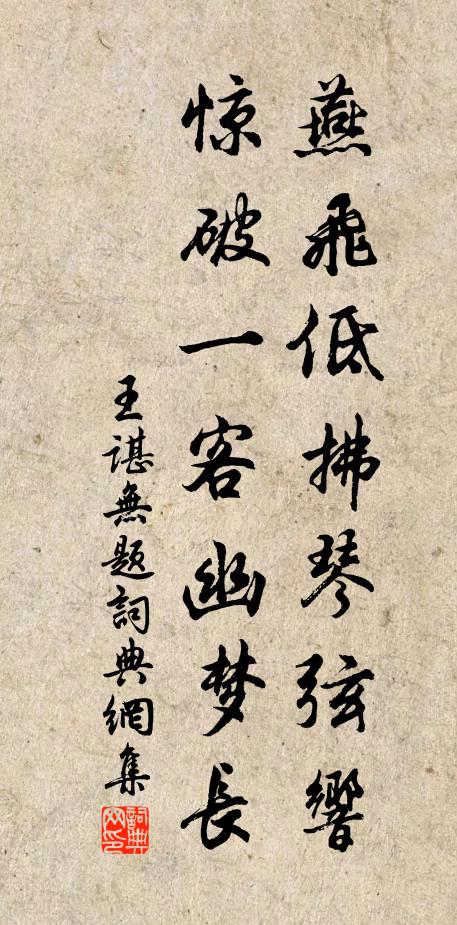 燕飛低拂琴弦響
惊破一客幽梦長
王諶無题詞典網集
詞典网印